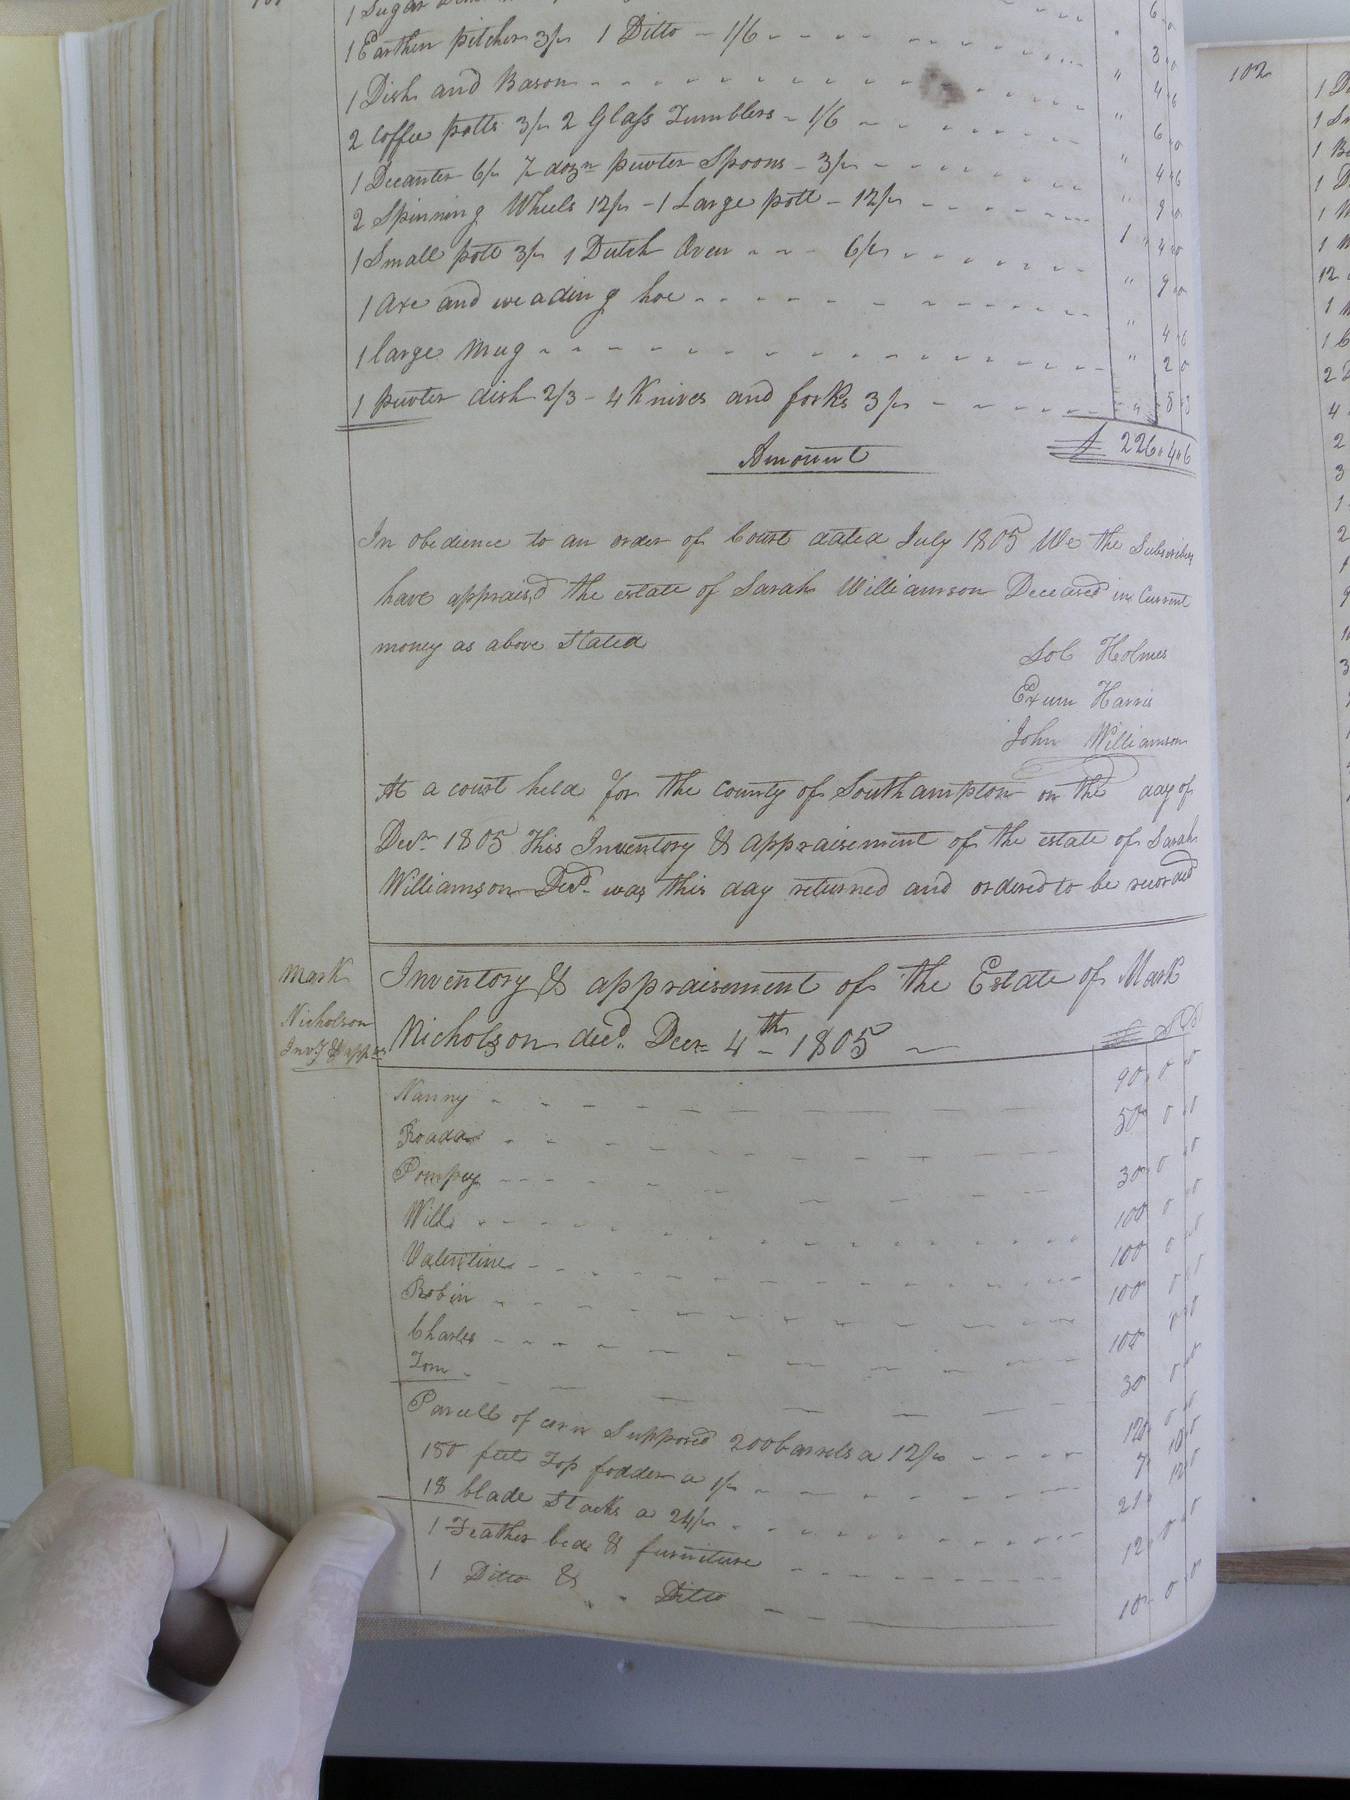 1 Sugar
1 Earthen pitcher 3/s 1 Ditto - 1/6 " 6 " 0
1 Dish and Bason " 3 " 0
2 Coffee potts 3/s 2 Glass Tumblers - 1/6 " 4 " 6
1 Decanter 6/s 7 dozn pewter Spoons - 3/s " 6 " 0
2 Spinning Wheels 12/s - 1 Large pott - 12/s " 4 " 6
1 Small pott 3/s 1 Dutch Oven 6/s " 9 " 0
1 Axe and weading hoe 1 " 4 " 0
1 large Mug " 9 " 0
1 pewter dish 2/3 - 4 Knives and forks 3/s " 4 " 6
" 2 " 0
" 5 " 3
Amount £ 226 " 4 " 6
In obedience to an order of Court dated July 1805 We the Subscribers
have apprais,d the estate of Sarah Williamson Deceased in Current
money as above Stated
Sol Holmes
Exum Harris
John Williamson
At a court held for the County of Southampton on the day of
Decr 1805 This Inventory & appraisement of the estate of Sarah
Williamson Decd. was this day returned and ordered to be recorded
Mark
Nicholson
Invy & appt
Inventory & appraisement of the Estate of Mark
Nicholson decd. Decr 4th 1805 £ S D
Nanny 90 " 0 " 0
Roada 50 " 0 " 0
Pompey 30 " 0 " 0
Will 100 " 0 " 0
Valentine 100 " 0 " 0
Robin 100 " 0 " 0
Charles 100 " 0 " 0
Tom 30 " 0 " 0
Parcell of corn Supposed 200 barrels a 12/s 120 " 0 " 0
150 feet Top fodder a 1/s 7 " 10 " 0
18 blade Stacks a 24/s 21 " 12 " 0
1 Feather bed & furniture 12 " 0 " 0
1 Ditto & " Ditto 10 " 0 " 0
102